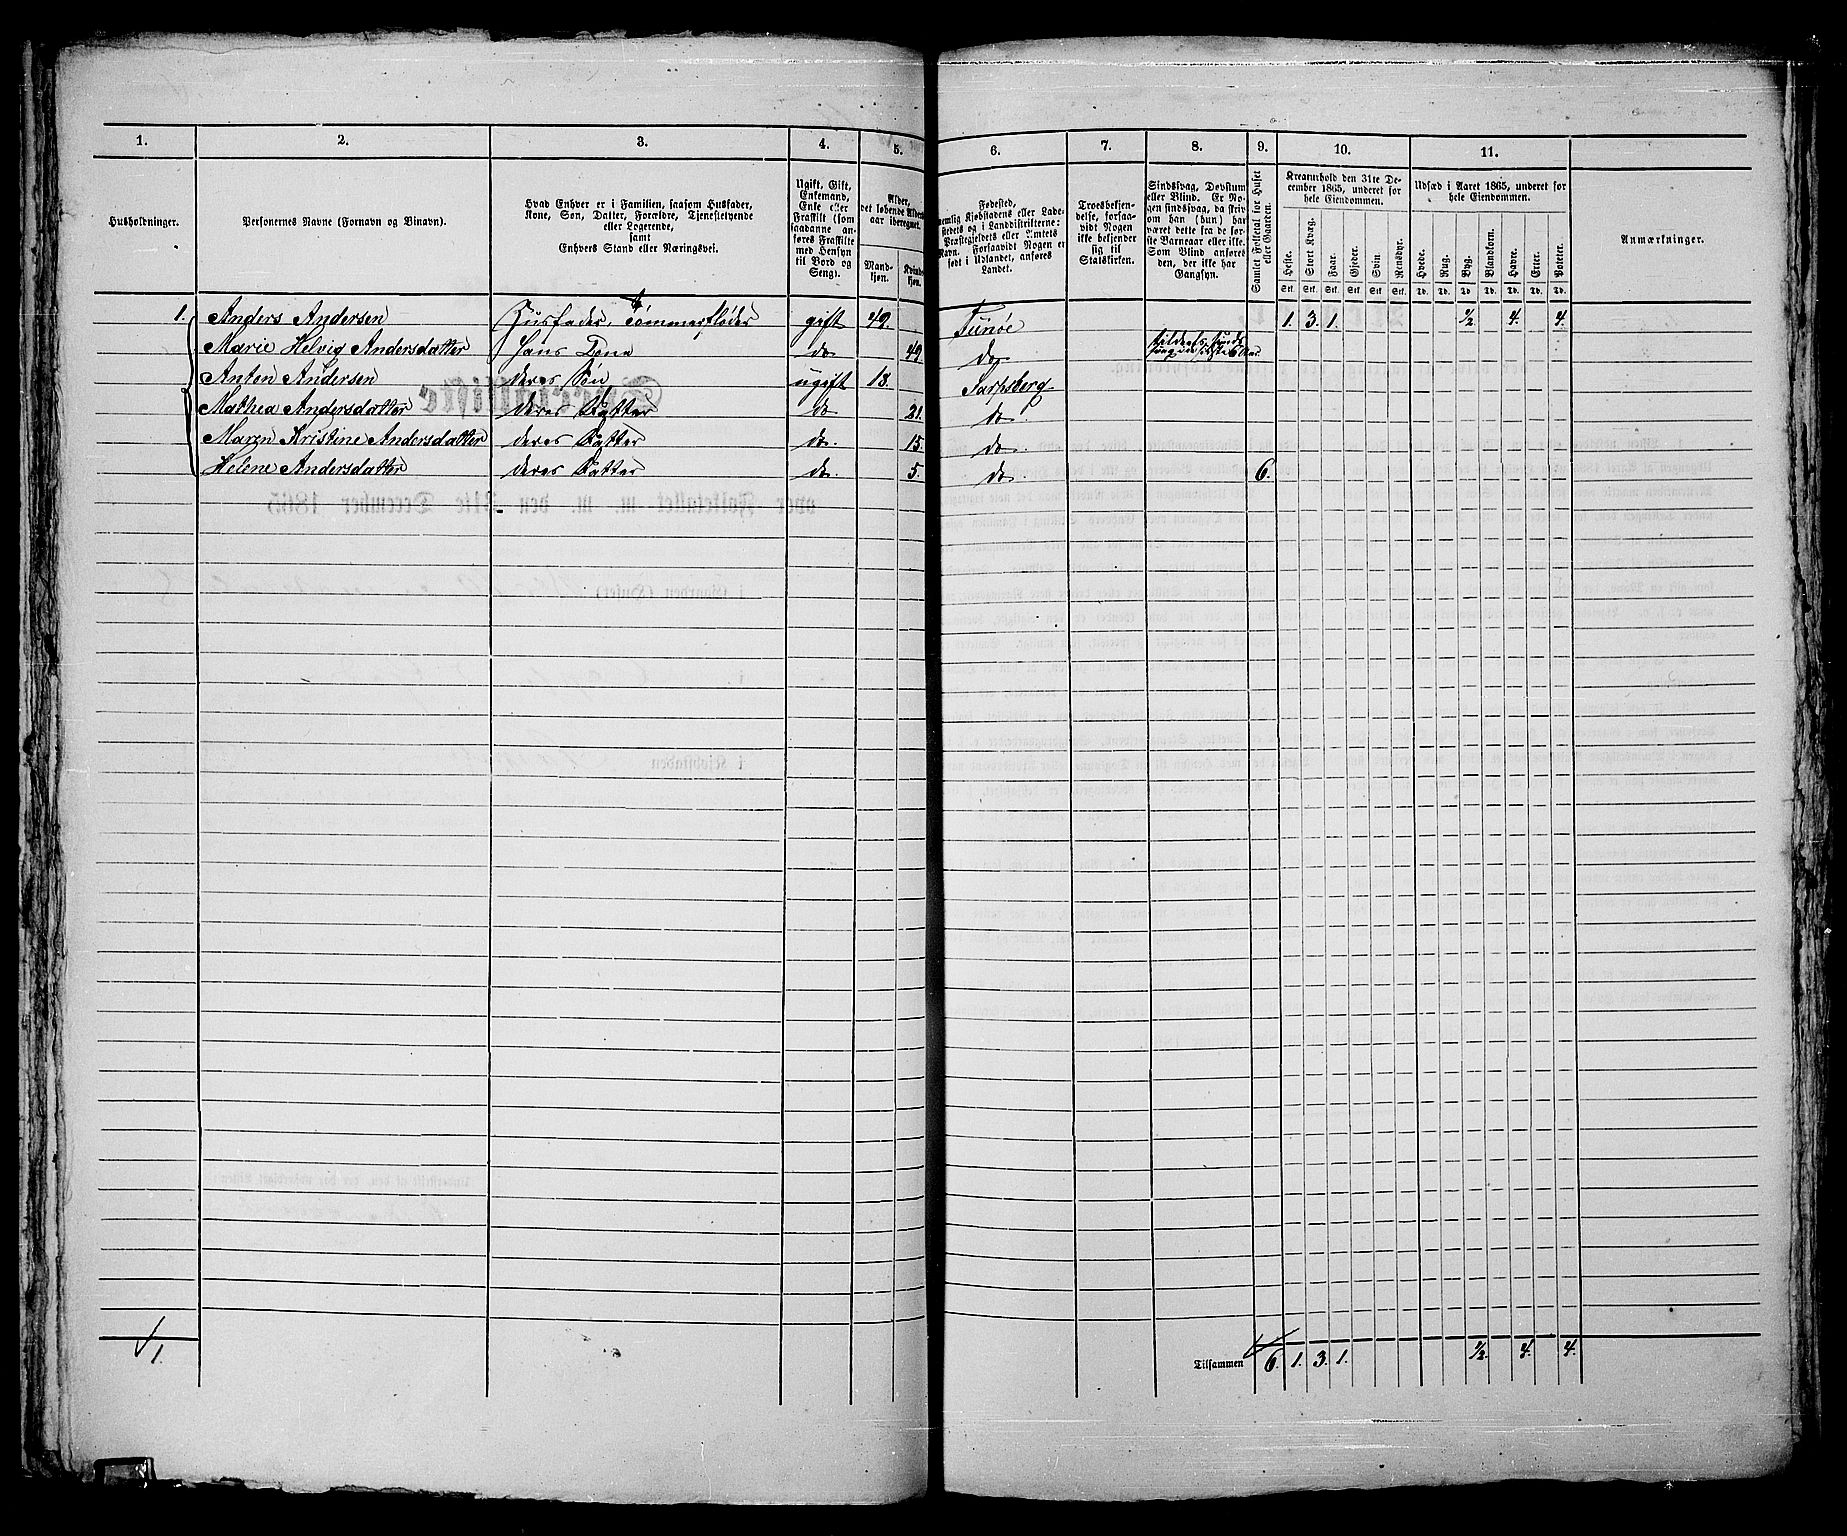 1. 2. 3. 4. 5. 6. 7. 8. 9. 10. 11.
Husholdninger.
Personernes Navne (Fornavn og Binavn).
Hvad Enhver er i Familien, saasom Husfader,
Kone, Søn, Datter, Forældre, Tjenestetyende
eller Logerende,
samt
Enhvers Stand eller Næringsvei.
Ugift, Gift,
Enkemand,
Enke eller
Fraskilt (som
saadanne an-
føres Fraskilte
med Hensyn
til Bord og
Seng).
Alder,
det løbende Alders-
aar iberegnet.
Mand-
kjøn.
Kvinde-
kjøn.
Fødested,
nemlig Kjøbstadens eller Lade-
stedets og i Landdistrikterne:
Præstegjeldets eller Amtets
Navn. Forsaavidt Nogen er
født i Udlandet, anføres
Landet.
Troesbekjen-
delse, forsaa-
vidt Nogen
ikke bekjender
sig til
Statskirken.
Sindssvag, Døvstum
eller Blind. Er No-
gen sindssvag, da skriv
om han (hun) har
været dette fra de før-
ste Barneaar eller ikke.
Som Blind anføres
den, der ikke har
Gangsyn.
Samlet Folketal for Huset
eller Gaarden.
Kreaturhold den 31te De-
cember 1865, underet for
hele Eiendommen.
Heste. Stort Kvæg. Faar. Gjeder. Svin. Rensdyr.
Stk. Stk. Stk. Stk. Stk. Stk.
Udsæd i Aaret 1865, underet for
hele Eiendommen.
Hvede. Rug. Byg. Blandkorn. Havre. Erter. Poteter.
Td. Td. Td. Td. Td. Td. Td.
Anmærkninger.
1. Anders Andersen Husfader, Tømmerfløder gift 49. Tunøe 1. 3. 1. ½ 4. 4.
Marie Helvig Andersdatter hans Kone do 49. do
Anton Andersen deres Søn ugift 18. Sarpsborg
Mathea Andersdatter deres Datter do 21. do
Maren Kristine Andersdatter deres Datter do. 15. do.
Helene Andersdatter deres Datter do 5. do. 6.
1. Tilsammen 6. 1. 3. 1. ½. 4. 4.